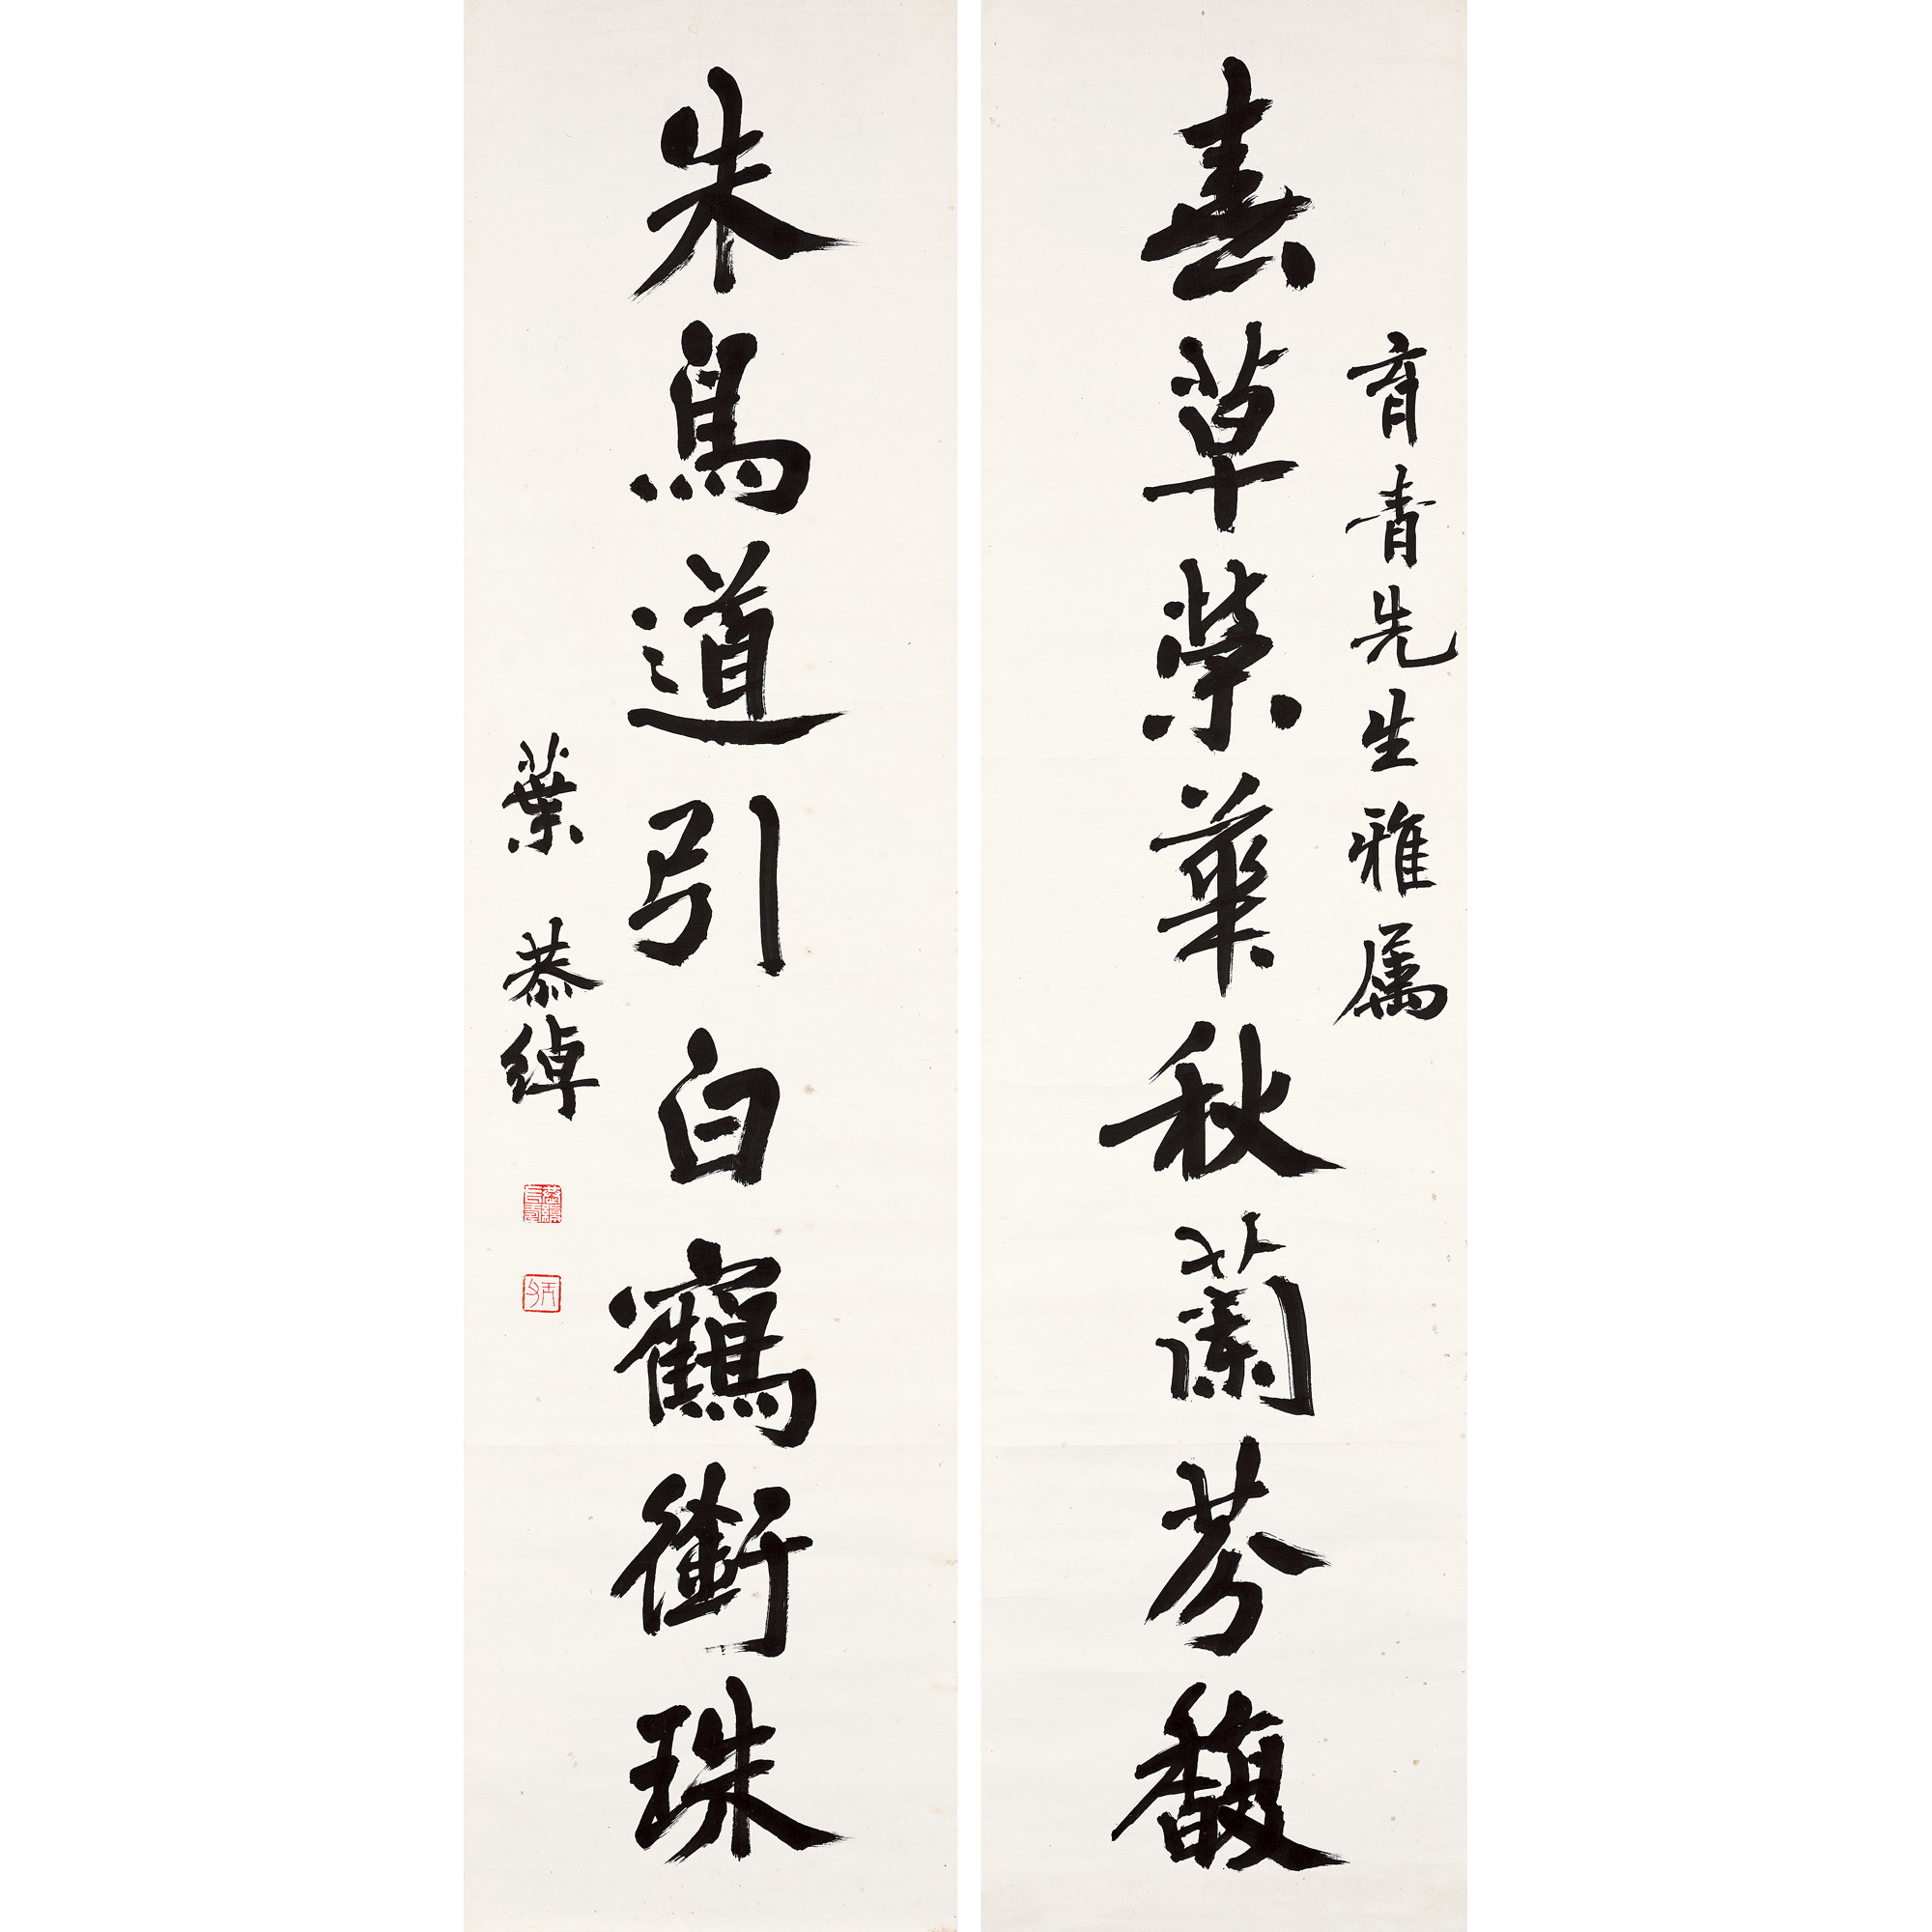 育青先生雅属
草榮華秋蘭芬馥
朱鳥道引白鶴銜珠
葉恭綽